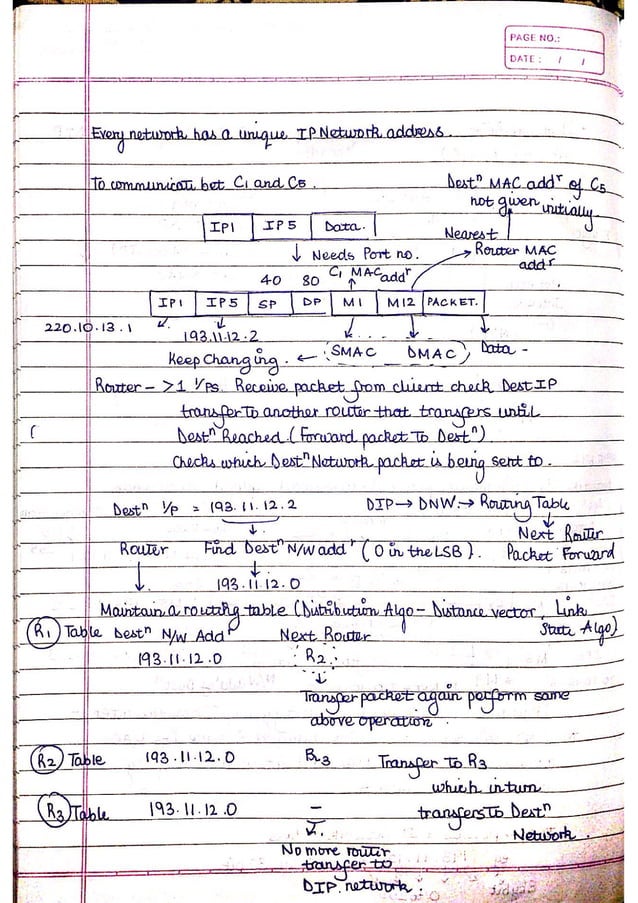 PAGE NO.:
DATE: / /
Every network has a unique IP Network address.
To communicati bet C1 and C5.
Destⁿ MAC addʳ of C5
not given initially.
IP1 IP5 Data.
Nearest
Router MAC
addʳ
↓ Needs Port no.
40 80 C1 MAC addʳ
IP1 IP5 SP DP M1 M12 PACKET.
220.10.13.1
193.11.12.2
Keep Changing. ← (SMAC DMAC), Data -
Router - >1 I/Ps. Receive packet from client check Dest IP
transfer To another router that transfers until
Destⁿ Reached. (Forward packet To Destⁿ)
(
Checks which Destⁿ Network packet is being sent to.
Destⁿ I/P = 193.11.12.2 DIP → DNW. → Routing Table
↓
Next Router
Packet Forward
Router Find Destⁿ N/W addʳ (0 in the LSB).
193.11.12.0
Maintain a routing table (Distribution Algo - Distance vector, Link
State Algo)
R1 Table Destⁿ N/W Addʳ Next Router
193.11.12.0 R2.
↓
Transfer packet again perform same
above operation.
R2 Table 193.11.12.0 R3 Transfer To R3
which in turn
R3 Table 193.11.12.0 - transfers To Destⁿ
Network.
No more router
transfer to
DIP. network.